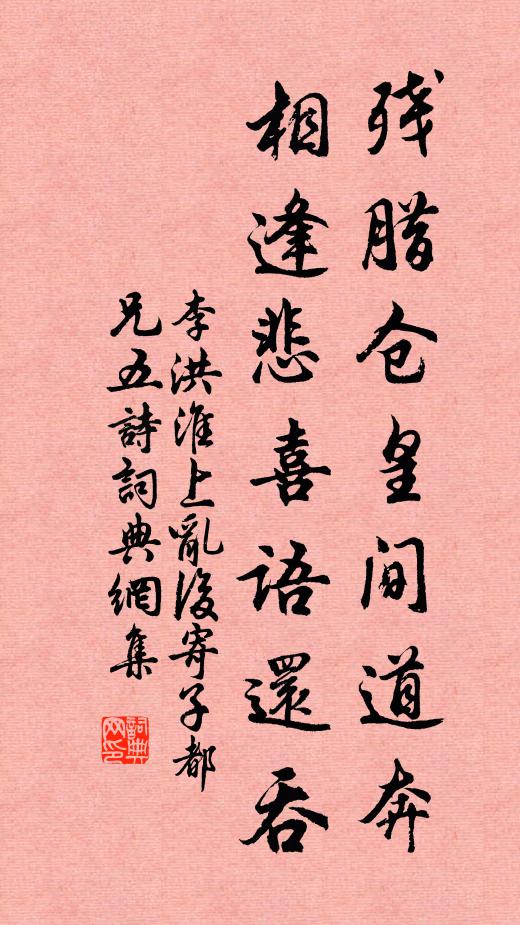 残腊仓皇间道奔
相逢悲喜语還吞
李洪淮上亂後寄子都
兄五詩詞典網集
詞典网印